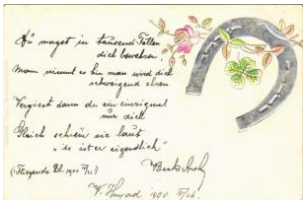 Du magst in tausend Fällen
dich bewähren,
Man nimmt es hin man wird dich
schweigend ehren
Vergisst dann du ein einzigmal
nur dich
Gleich schrein sie laut
"so ist er eigentlich"
(Fliegende Bl. 1900
1900